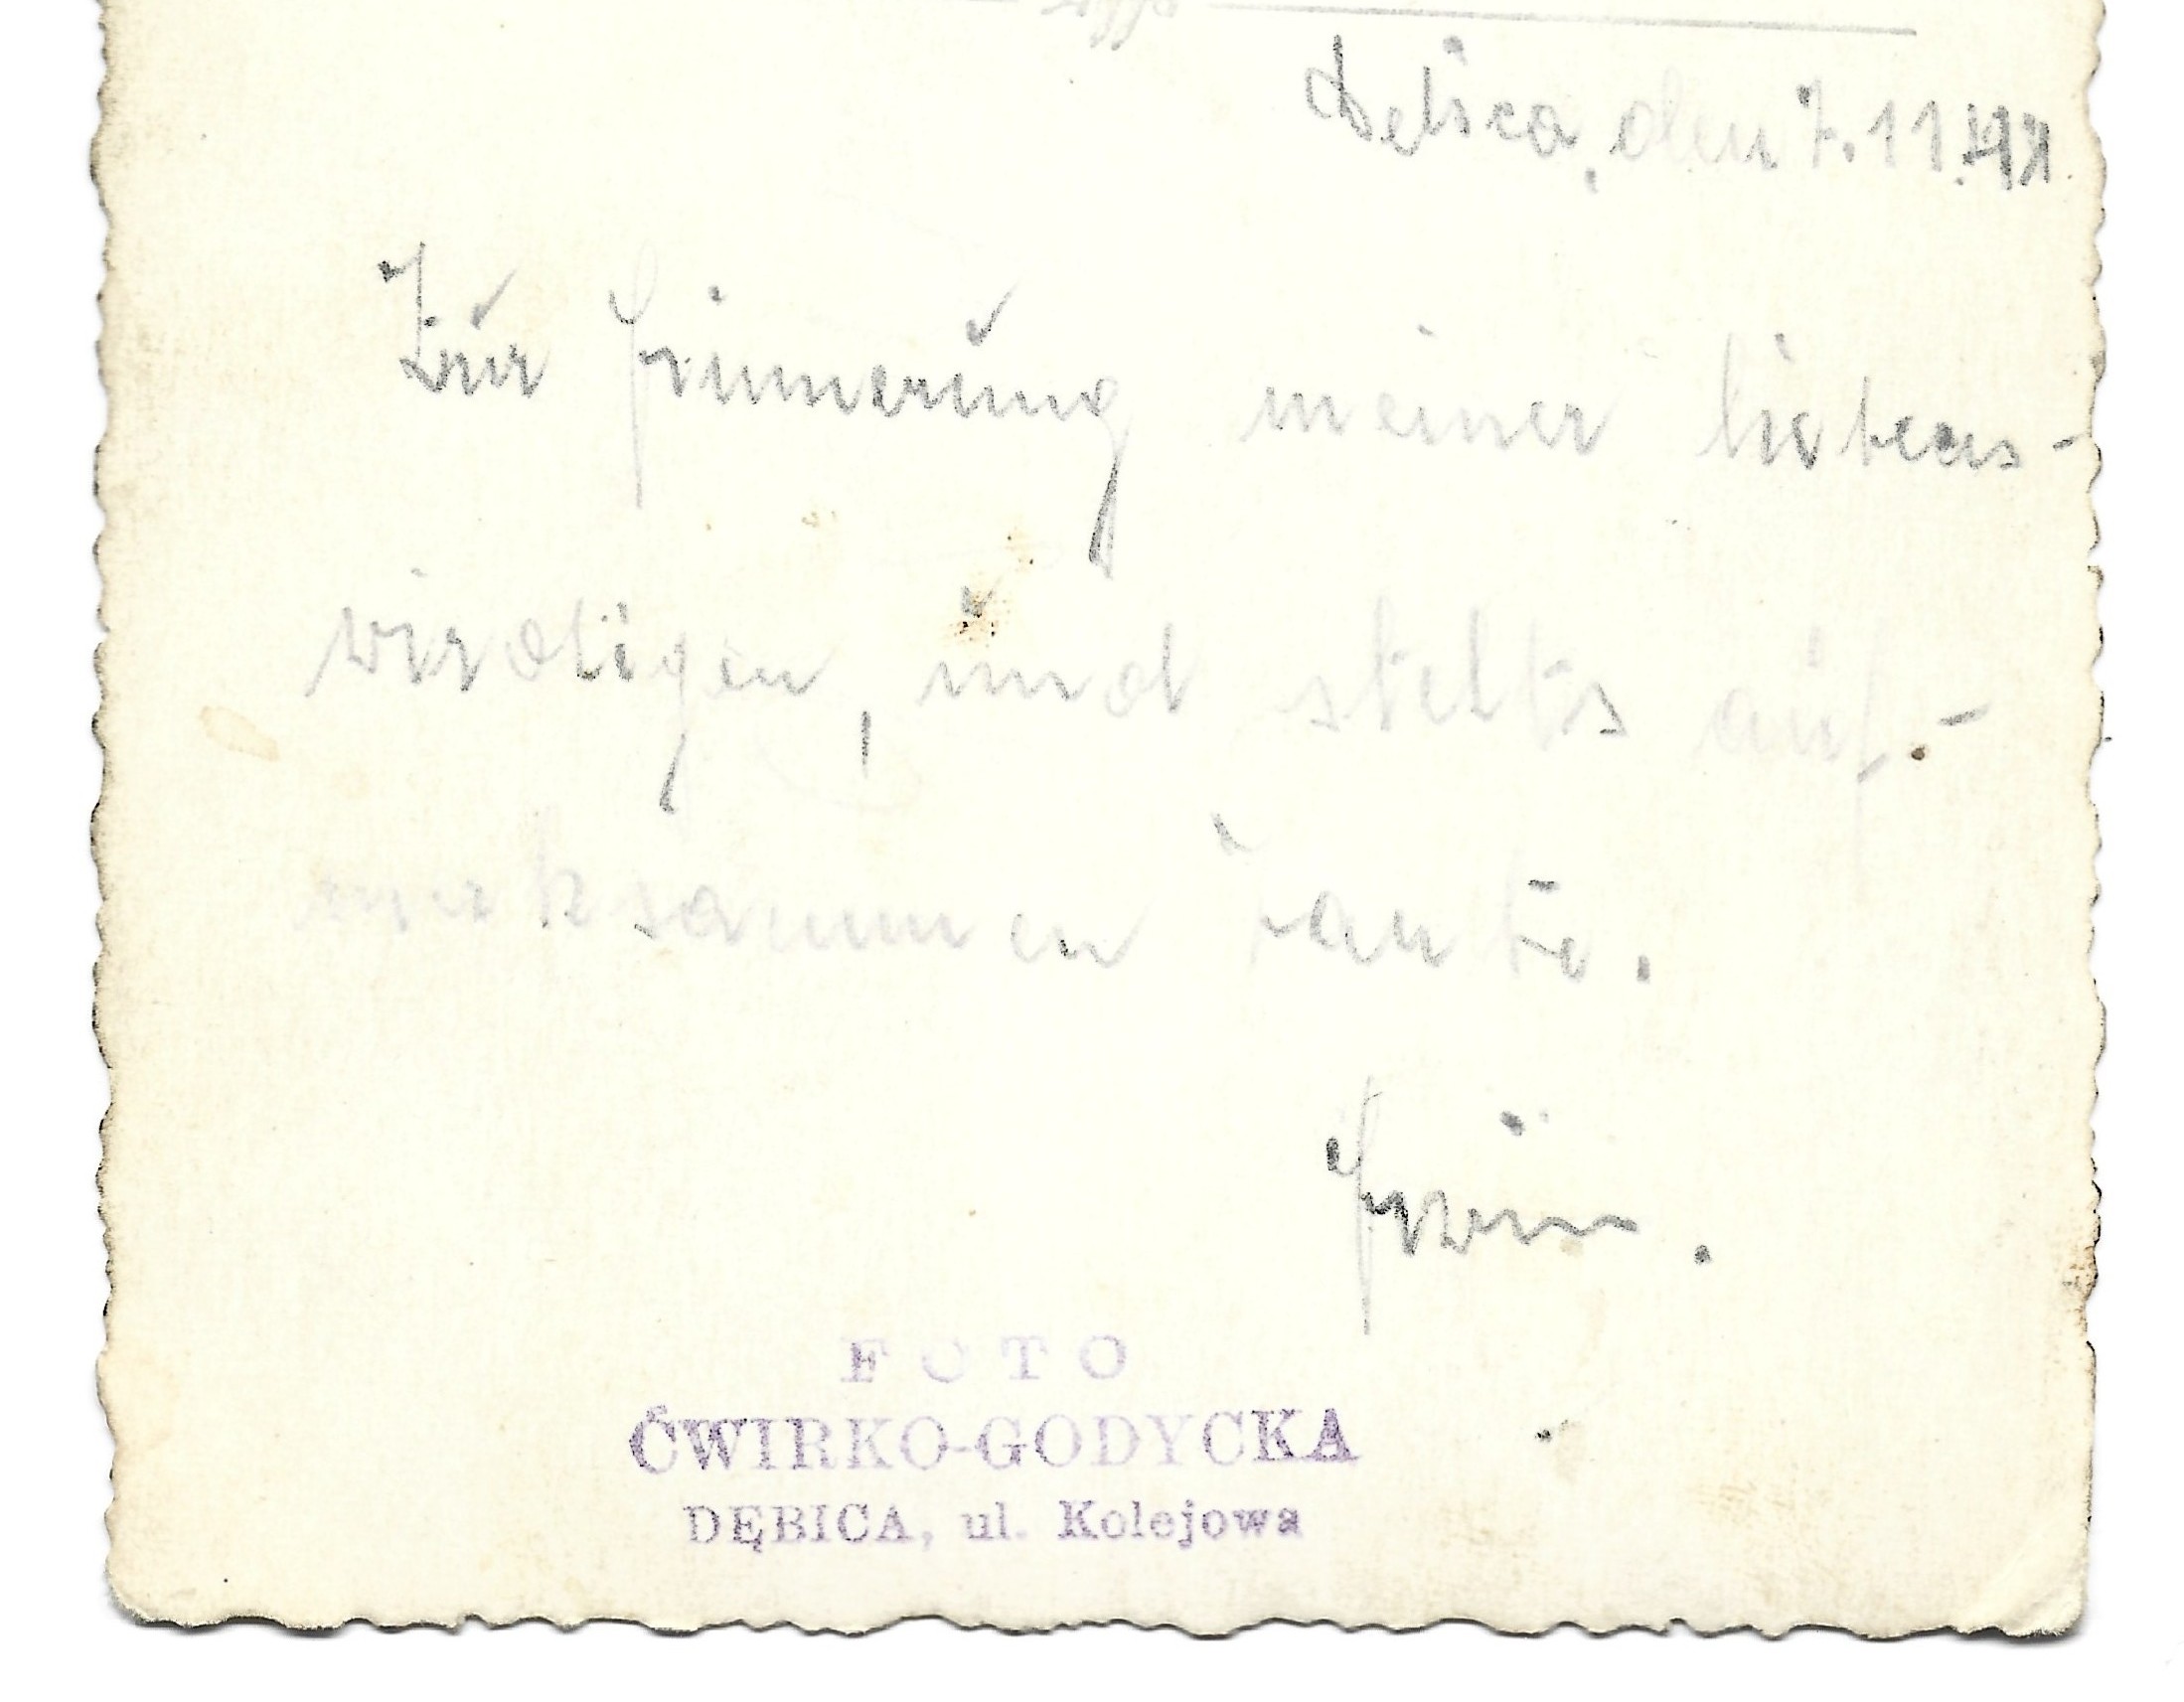 Debica, den 7.11.41.
Zur Erinnerung meiner liebens-
wirdigen, und stehts auf-
merksammen Tante.
Erwin.
FOTO
ĆWIRKO-GODYCKA
DĘBICA, ul. Kolejowa